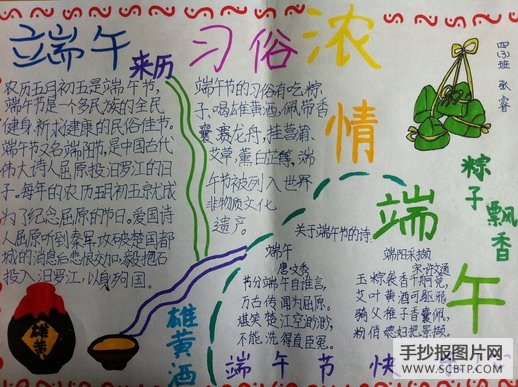 端午
来历
习俗
浓
情
端
午
四(3)班 张睿
粽子飘香
农历五月初五是端午节,
端午节是一个多民族的全民
健身,祈求健康的民俗佳节。
端午节又名端阳节,是中国古代
伟大诗人屈原投汨罗江的日
子。每年的农历五月初五就成
为了纪念屈原的节日。爱国诗
人屈原听到秦军攻破楚国都
城的消息后悲恨交加,毅然抱石
投入汨罗江,以身殉国。
端午节的习俗有吃粽
子、喝雄黄酒、佩带香
囊、赛龙舟,挂菖蒲、
艾草,薰白芷等,端
午节被列入世界
非物质文化
遗产。
关于端午节的诗:
端午
唐·文秀
节分端午自谁言,
万古传闻为屈原。
堪笑楚江空渺渺,
不能洗得直臣冤。
端阳采撷
玉粽袭香千舸竞,
艾叶黄酒可驱邪。
骑父稚子香囊佩,
粉俏媳妇把景撷。
雄黄
雄黄酒
端午节快
手抄报图片网
WWW.SCBTP.COM